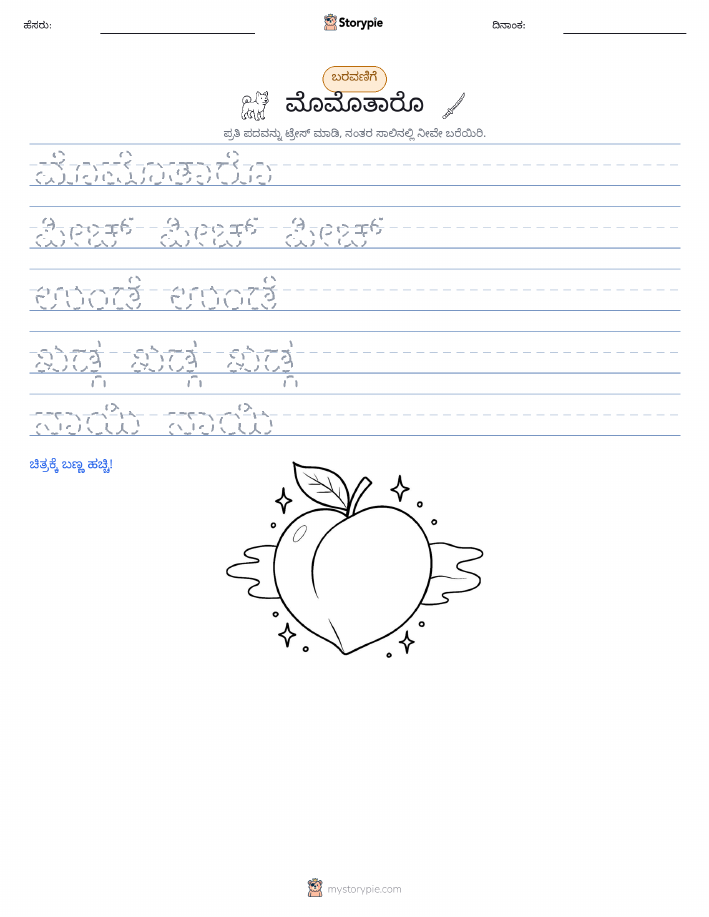 ಹೆಸರು: Storypie ದಿನಾಂಕ:
ಬರವಣಿಗೆ
ಮೊಮೊತಾರೊ
ಪ್ರತಿ ಪದವನ್ನು ಟ್ರೇಸ್ ಮಾಡಿ, ನಂತರ ಸಾಲಿನಲ್ಲಿ ನೀವೇ ಬರೆಯಿರಿ.
ಮೊಮೊತಾರೊ
ಪೀಚ್ ಪೀಚ್ ಪೀಚ್
ಉಂಡೆ ಉಂಡೆ
ಖಡ್ಗ ಖಡ್ಗ ಖಡ್ಗ
ನಾಯಿ ನಾಯಿ
ಚಿತ್ರಕ್ಕೆ ಬಣ್ಣ ಹಚ್ಚಿ!
mystorypie.com